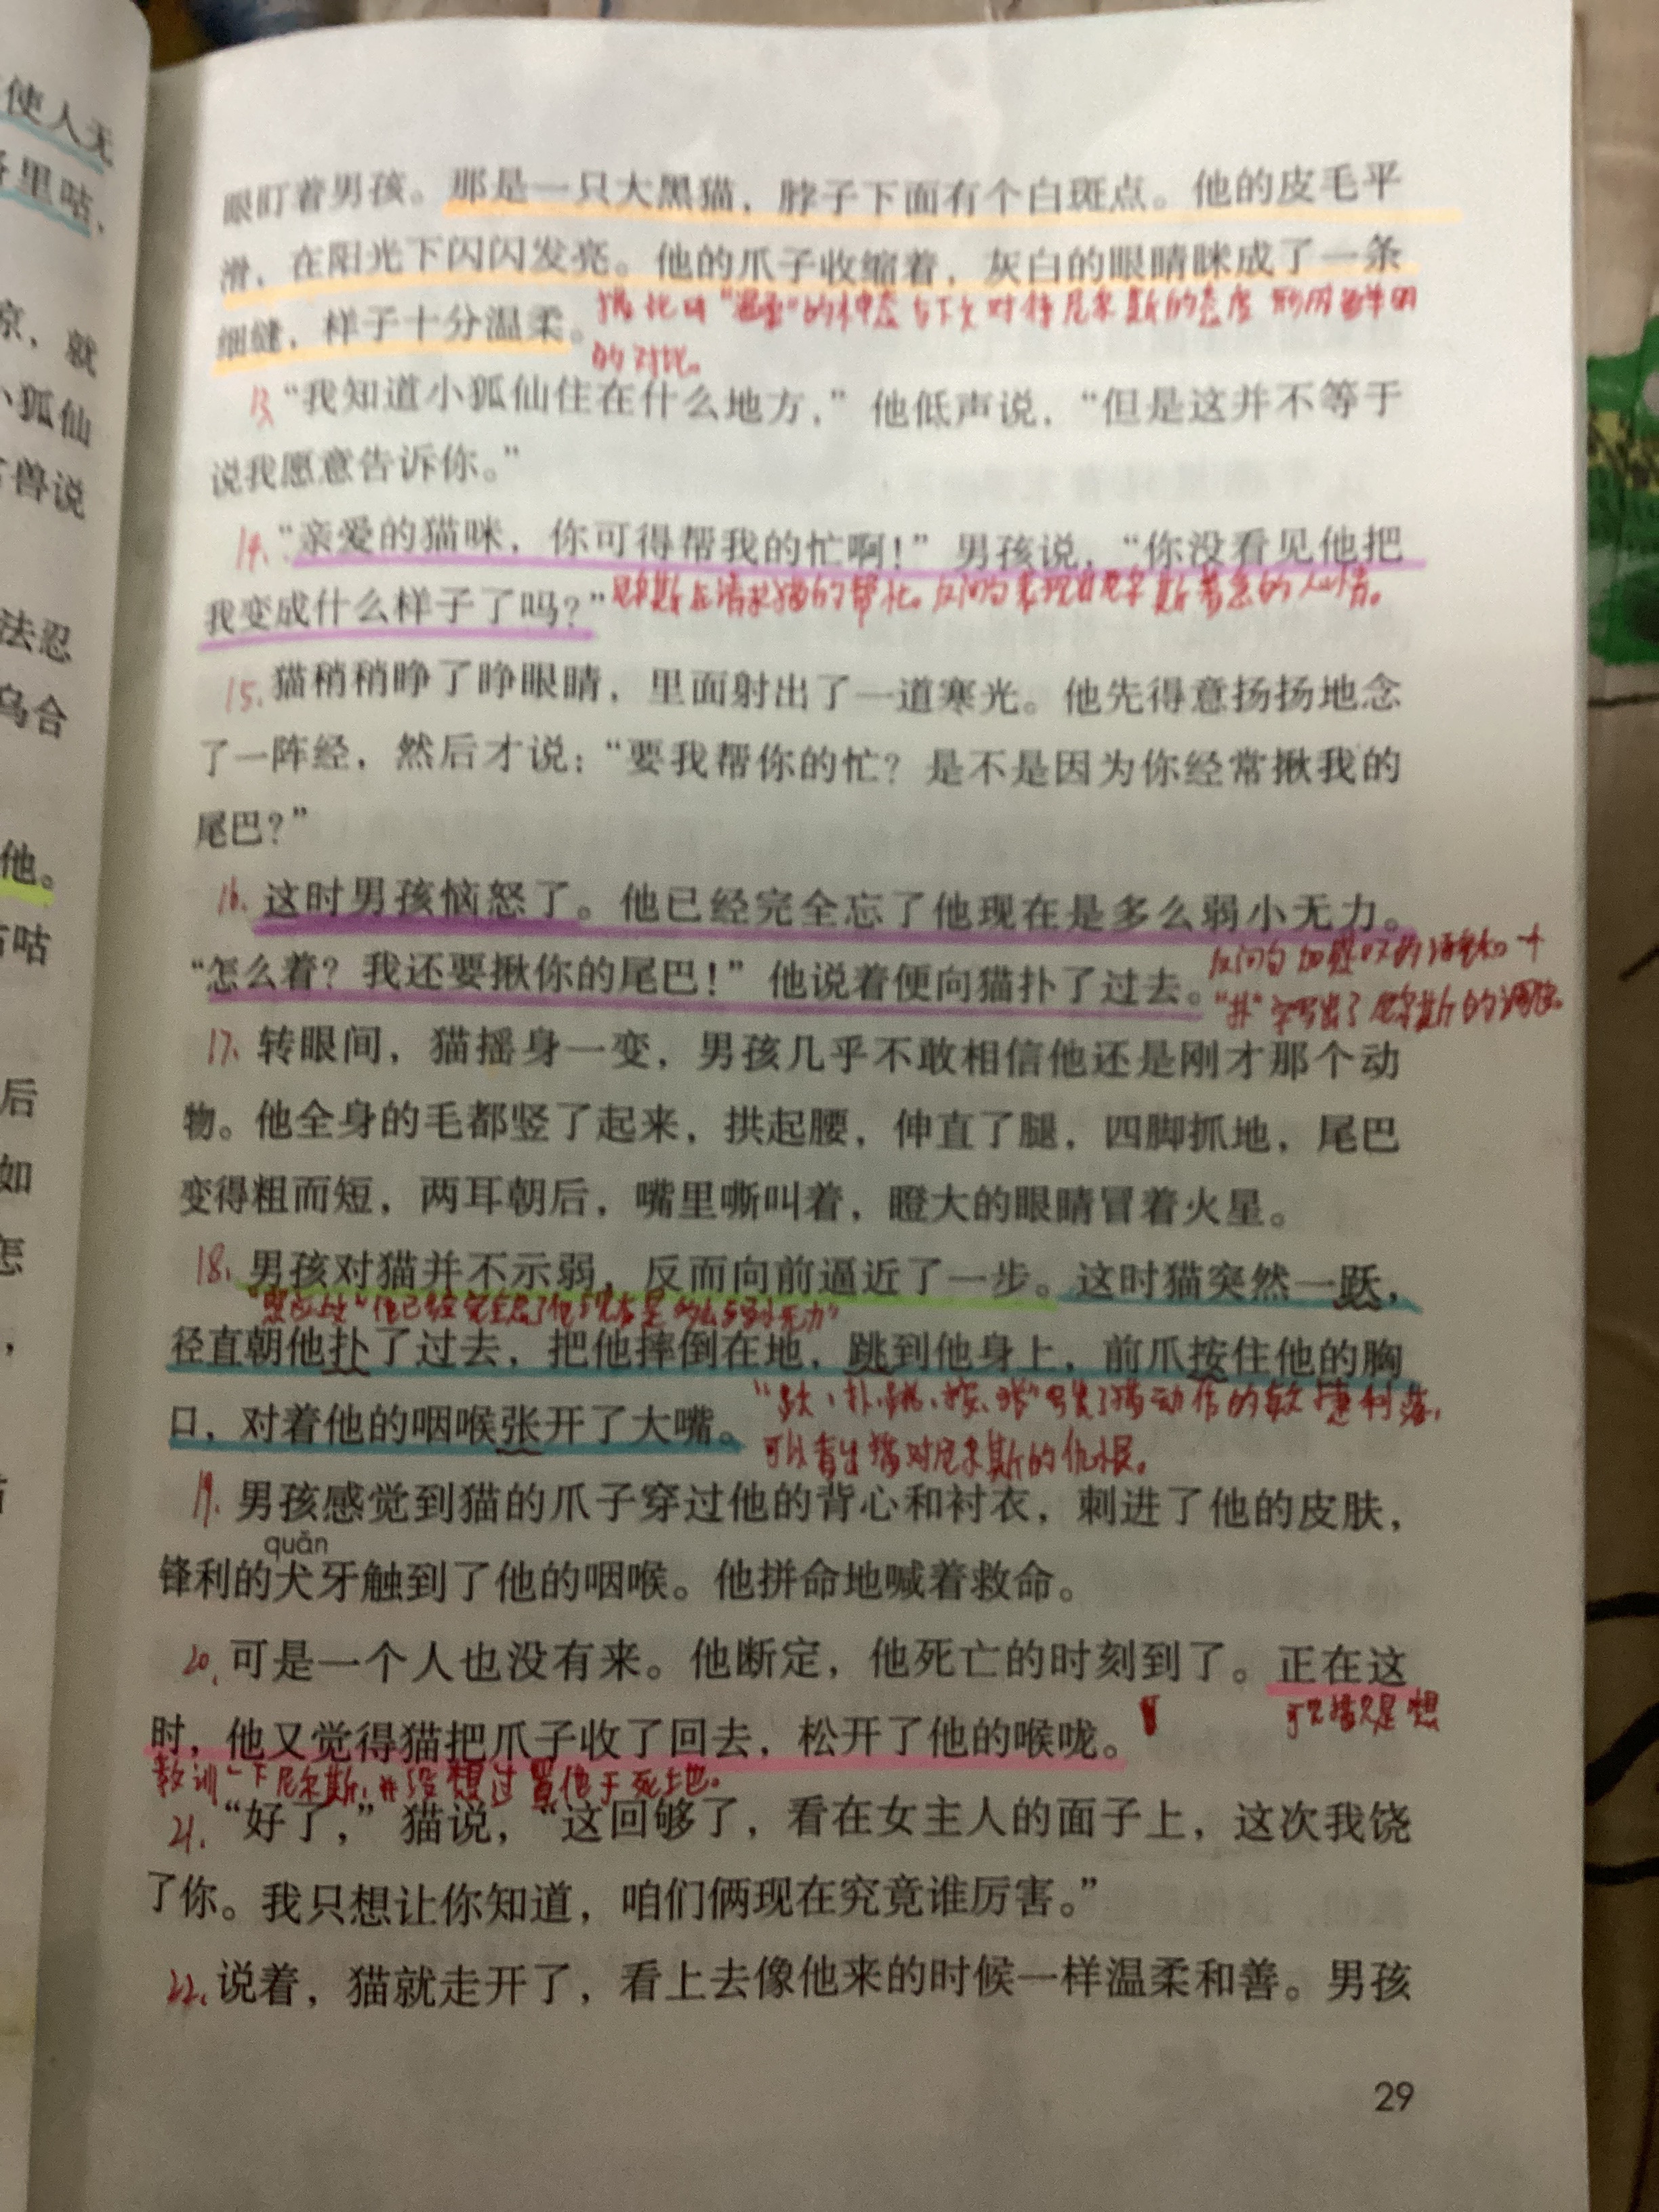 使人无
里咕、
眼盯着男孩。那是一只大黑猫，脖子下面有个白斑点。他的皮毛平
滑，在阳光下闪闪发亮。他的爪子收缩着，灰白的眼睛眯成了一条
细缝，样子十分温柔。
猫此时“温柔”的神态与下文对待尼尔斯的态度形成鲜明
的对比。
就
小狐仙
兽说
13.“我知道小狐仙住在什么地方，”他低声说，“但是这并不等于
说我愿意告诉你。”
14.“亲爱的猫咪，你可得帮我的忙啊！”男孩说，“你没看见他把
我变成什么样子了吗？”
尼尔斯在请求猫的帮忙。反问句表现出尼尔斯着急的心情。
法忍
乌合
15.猫稍稍睁了睁眼睛，里面射出了一道寒光。他先得意扬扬地念
了一阵经，然后才说：“要我帮你的忙？是不是因为你经常揪我的
尾巴？”
他。
咕
16.这时男孩恼怒了。他已经完全忘了他现在是多么弱小无力。
“怎么着？我还要揪你的尾巴！”他说着便向猫扑了过去。
反问句加强
“扑”字写出了尼尔斯的调皮。
17.转眼间，猫摇身一变，男孩几乎不敢相信他还是刚才那个动
物。他全身的毛都竖了起来，拱起腰，伸直了腿，四脚抓地，尾巴
变得粗而短，两耳朝后，嘴里嘶叫着，瞪大的眼睛冒着火星。
后
如
怎
18.男孩对猫并不示弱，反而向前逼近了一步。这时猫突然一跃，
“他已经完全忘了他现在是多么弱小无力”
径直朝他扑了过去，把他摔倒在地，跳到他身上，前爪按住他的胸
口，对着他的咽喉张开了大嘴。
“跃、扑、跳、按、张”写出了猫动作的敏捷利落，
可以看出猫对尼尔斯的仇恨。
19.男孩感觉到猫的爪子穿过他的背心和衬衣，刺进了他的皮肤，
quǎn
锋利的犬牙触到了他的咽喉。他拼命地喊着救命。
20.可是一个人也没有来。他断定，他死亡的时刻到了。正在这
时，他又觉得猫把爪子收了回去，松开了他的喉咙。
可见猫只是想
教训一下尼尔斯，并没想过置他于死地。
21.“好了，”猫说，“这回够了，看在女主人的面子上，这次我饶
了你。我只想让你知道，咱们俩现在究竟谁厉害。”
22.说着，猫就走开了，看上去像他来的时候一样温柔和善。男孩
29